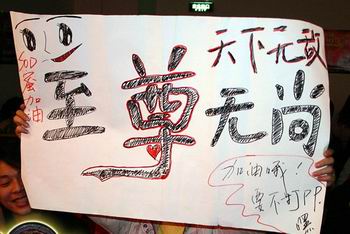 天下无敌
加蛋加油
至尊无尚
加油哦!
要不打PP.
嘿